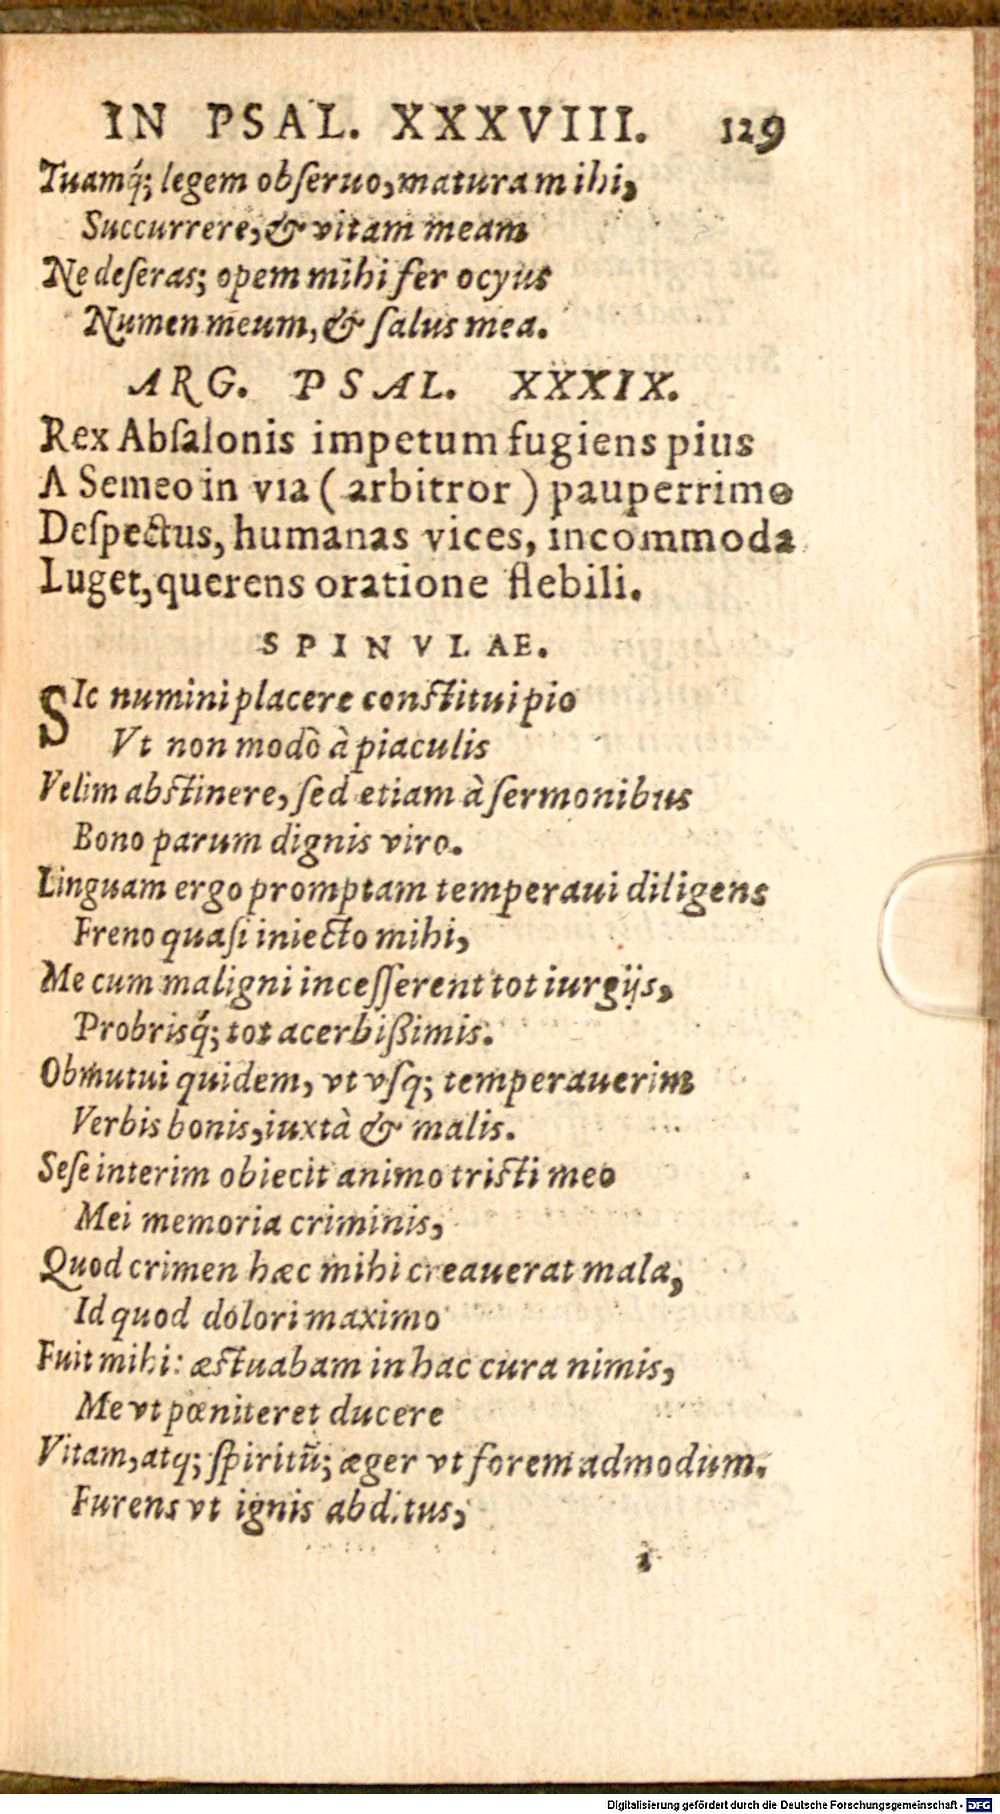 IN PSAL. XXXVIII. 129
Tuamq́; legem obſeruo, matura mihi,
Succurrere, & vitam meam
Ne deſeras; opem mihi fer ocyus
Numen meum, & ſalus mea.
ARG. PSAL. XXXIX.
Rex Abſalonis impetum fugiens pius
A Semeo in via ( arbitror ) pauperrimo
Deſpectus, humanas vices, incommoda
Luget, querens oratione flebili.
SPINVLAE.
SIc numini placere conſtitui pio
Vt non modò à piaculis
Velim abſtinere, ſed etiam à ſermonibus
Bono parum dignis viro.
Linguam ergo promptam temperaui diligens
Freno quaſi iniecto mihi,
Me cum maligni inceſſerent tot iurgijs,
Probrisq́; tot acerbißimis.
Obmutui quidem, vt vſq; temperauerim
Verbis bonis, iuxtà & malis.
Seſe interim obiecit animo triſti meo
Mei memoria criminis,
Quod crimen hæc mihi creauerat mala,
Id quod dolori maximo
Fuit mihi: æſtuabam in hac cura nimis,
Me vt pœniteret ducere
Vitam, atq; ſpiritũ; æger vt forem admodum.
Furens vt ignis abditus,
i
Digitalisierung gefördert durch die Deutsche Forschungsgemeinschaft - DFG